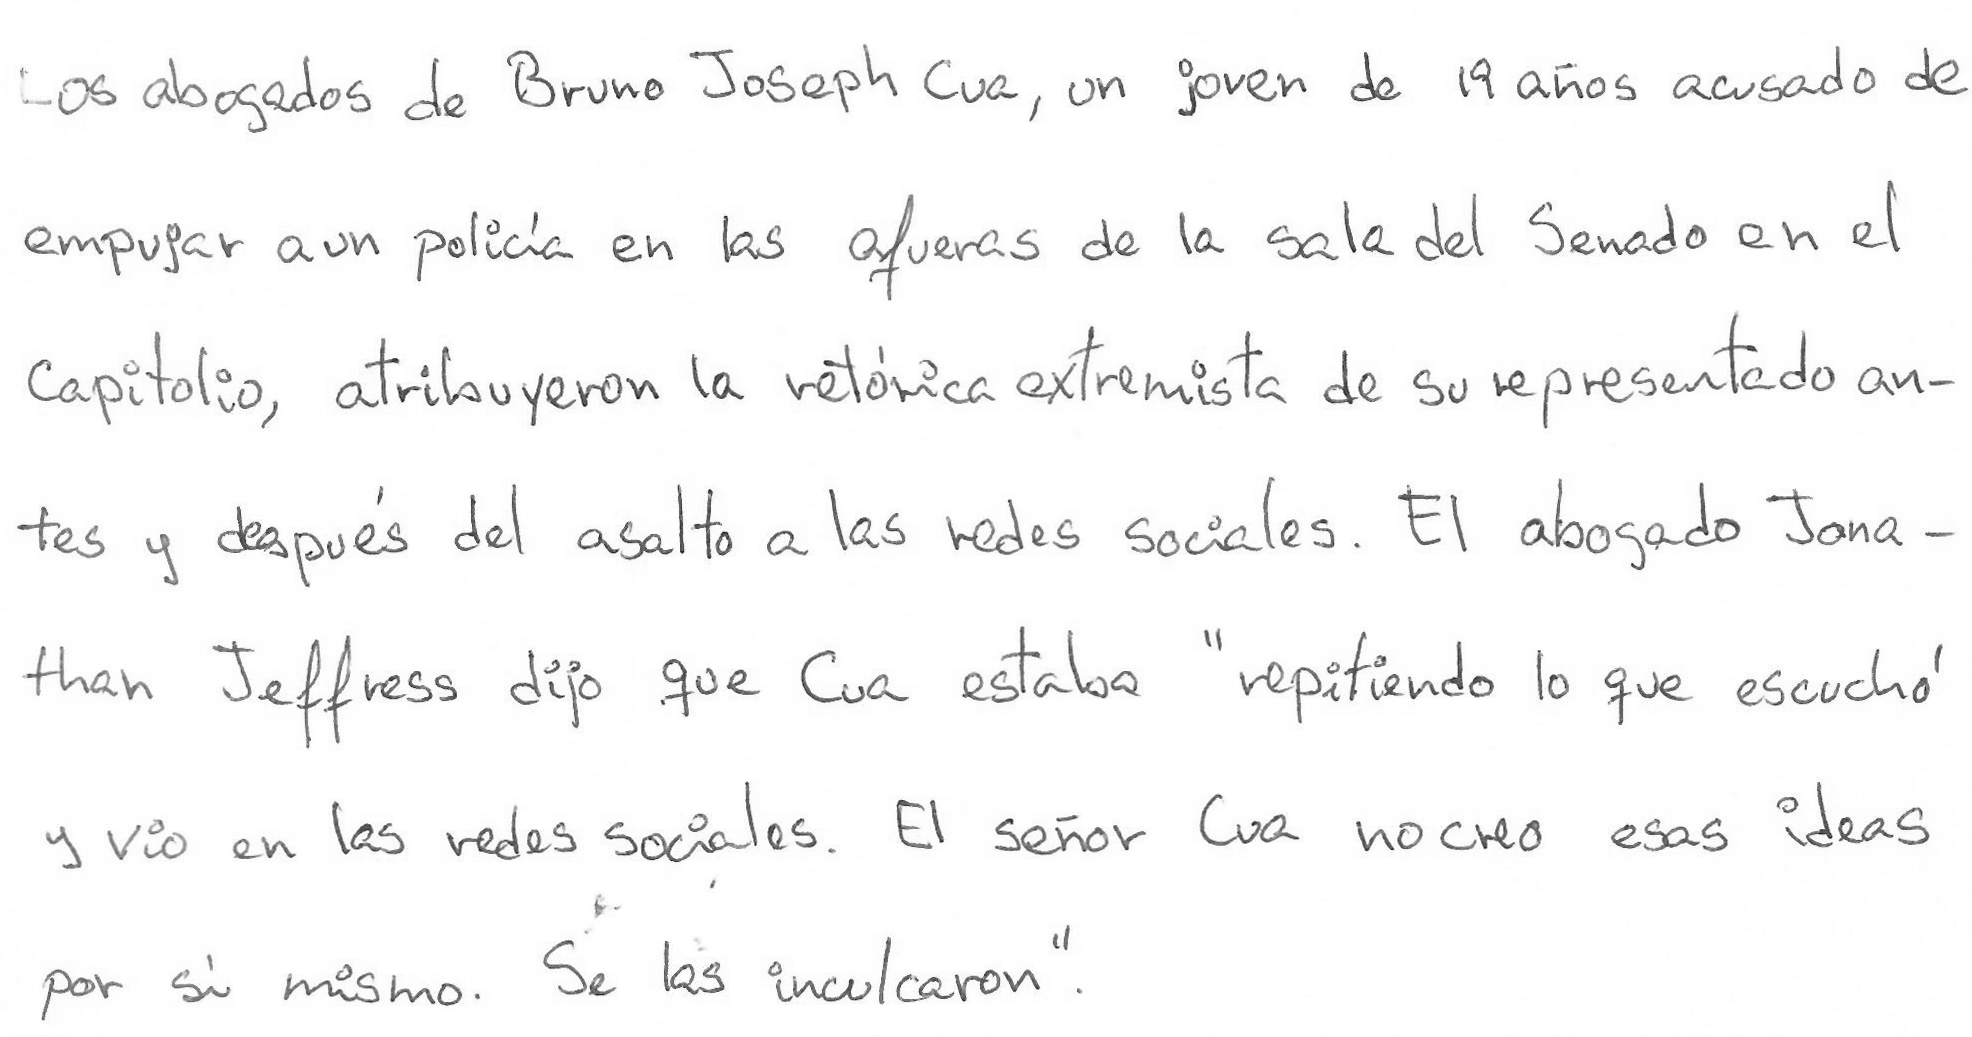 Los abogados de Bruno Joseph Cua, un joven de 19 años acusado de
empujar a un policía en las afueras de la sala del Senado en el
Capitolio, atribuyeron la retórica extremista de su representado an-
tes y después del asalto a las redes sociales. El abogado Jona-
than Jeffress dijo que Cua estaba "repitiendo lo que escuchó
y vio en las redes sociales. El señor Cua no creo esas ideas
por sí mismo. Se las inculcaron".